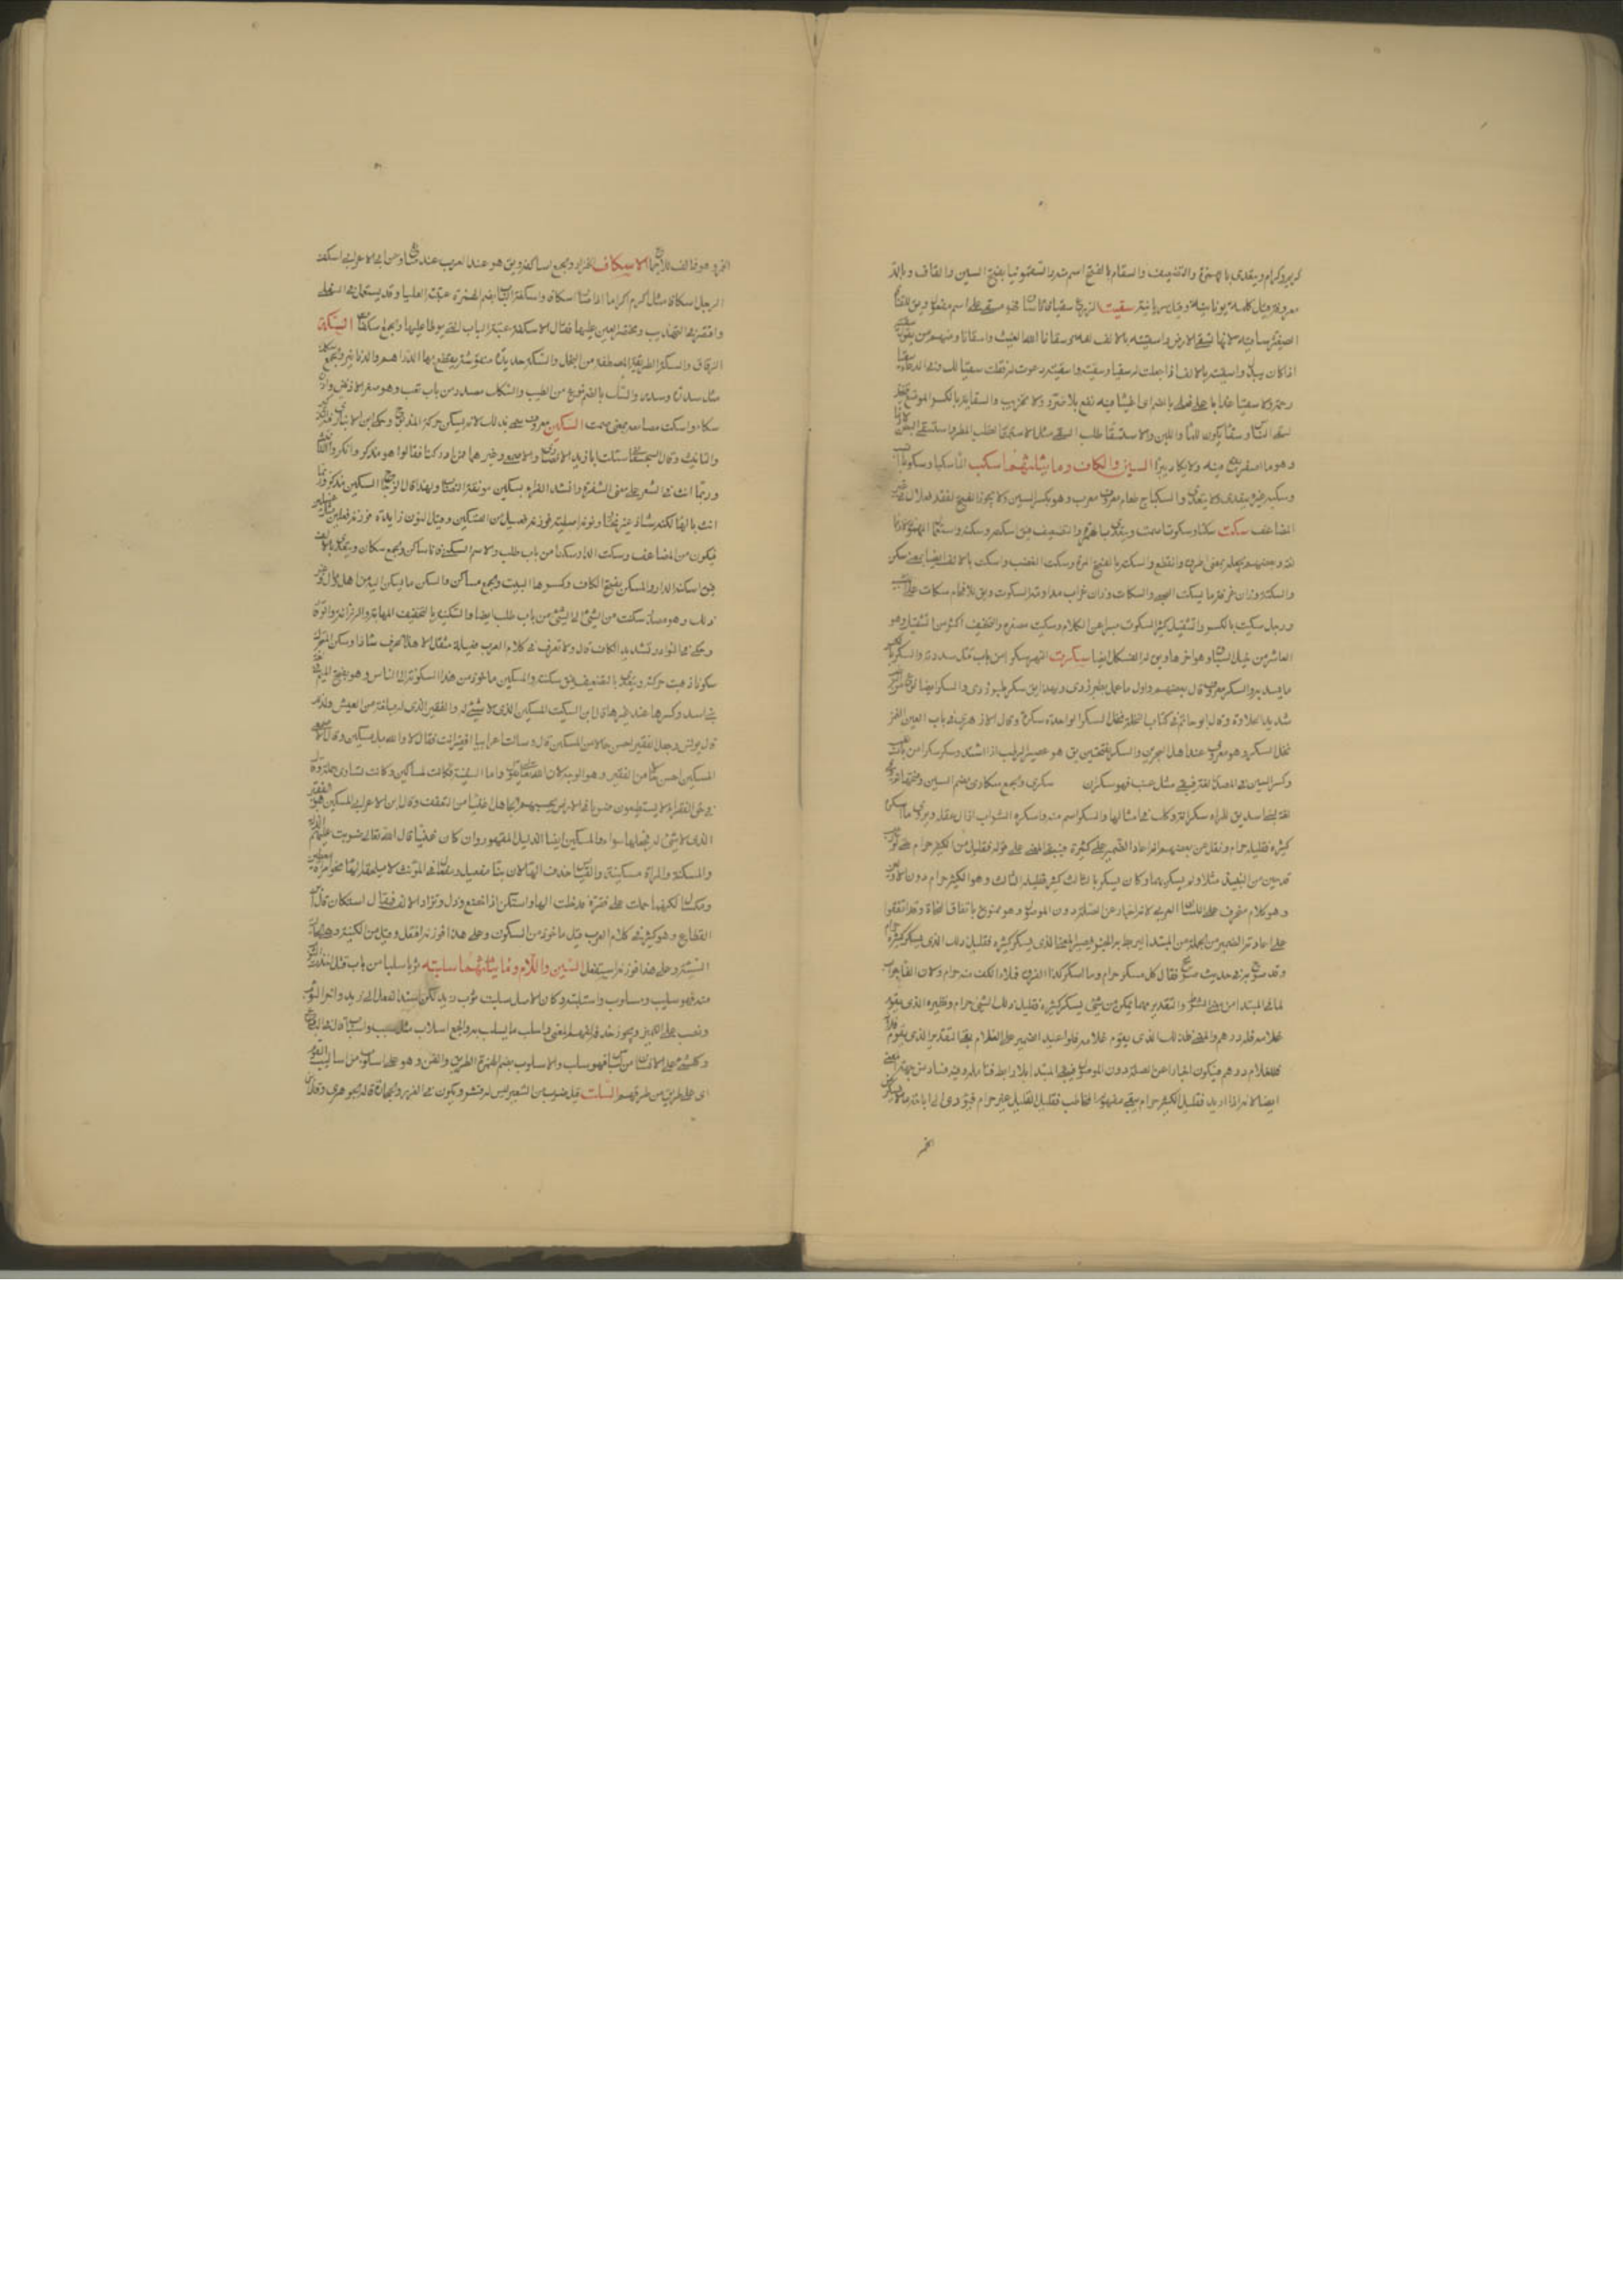 كريم وكرام ويتعدى بالهمزة والتضعيف والسقام بالفتح اسم منه والسقمونيا بفتح السين والقاف وبالمد
معروفة وقيل كلمة يونانية وقيل سريانية سقيت الزرع سقيا فانا ساق وهو مسقي على اسم مفعول ويق للقناة
الصغيرة ساقية لانها تسقي الارض واسقيته بالالف لغة وسقانا الله الغيث واسقانا ومنهم من يقول سقيته
اذا كان بيدك واسقيته بالالف اذا جعلت له سقيا وسقيته واسقيته دعوت له فقلت سقيا لك وفي الدعاء سقيا
رحمة ولا سقيا عذاب على فعلى بالضم اي اغثنا فيه نفع بلا ضرر ولا تخريب والسقاية بالكسر الموضع يتخذ
لسقي الناس والسقاء يكون للماء واللبن والاستسقاء طلب السقي مثل الاستمطار لطلب المطر واستسقى البطن
وهو ماء اصفر يقع فيه ولا يكاد يبرأ السين والكاف وما يثلثهما سكب الماء سكبا وسكوبا انصب
وسكبه غيره يتعدى ولا يتعدى والسكباج طعام معروف معرب وهو بكسر السين ولا يجوز الفتح لفقد فعلال في غير
المضاعف سكت سكتا وسكوتا صمت ويتعدى بالهمزة والتضعيف فيق اسكته وسكته واستعمال المهموز لازما
لغة وبعضهم يجعله بمعنى اطرق وانقطع والسكتة بالفتح المرة وسكت الغضب واسكت بالالف ايضا بمعنى سكن
والسكتة وزان غرفة ما يسكت به الصبي والسكات وزان غراب مداومة السكوت ويق للافحام سكات على التشبيه
ورجل سكيت بالكسر والتثقيل كثير السكوت صبرا عن الكلام وسكيت مصغر والتخفيف اكثر من التثقيل وهو
العاشر من خيل السباق وهو اخرها ويق له الفسكل ايضا سكرت النهر سكرا من باب قتل سددته والسكر بالكسر
ما يسد به والسكر معروف قال بعضهم واول ما عمل بطبرزد ولهذا يق سكر طبرزدي والسكر ايضا نوع من الرطب
شديد الحلاوة قال ابو حاتم في كتاب النخلة نخل السكر الواحدة سكرة وقال الازهري في باب العين العمر
نخل السكر وهو معروف عند اهل البحرين والسكر بفتحتين يق هو عصير الرطب اذا اشتد وسكر سكرا من باب تعب
وكسر السين في المصدر لغة فيبقى مثل عنب فهو سكران سكرى والجمع سكارى بضم السين وفتحها لغة
لغة ايضا سد يق للمراة سكرانة وكلت في امثالها والسكر اسم منه واسكره الشراب ازال عقله ويروى ما اسكر
كثيره فقليله حرام ونقل عن بعضهم انه اعاد الضمير على كثيره فيبقى المعنى على قوله فقليل من الكثير حرام حتى لو شرب
قدحين من النبيذ مثلا ولم يسكر بهما وكان يسكر بالثالث كثيره فقليل الثالث وهو الكثير حرام دون الاولين
وهو كلام منحرف عن اللسان العربي لانه اخبار عن الصلة دون الموصول وهو ممنوع باتفاق النحاة وقد اتفقوا
على اعادة الضمير من الجملة على المبتدا ليربط به الخبر فيصير المعنى الذي يسكر كثيره فقليل ذلك الذي يسكر كثيره حرام
وقد صرح به في حديث فقال كل مسكر حرام وما اسكر كذا الفرق فملء الكف منه حرام ولان الفاء جواب
لما في المبتدا من معنى الشرط والتقدير مهما يكن من شيء يسكر كثيره فقليل ذلك الشيء حرام ونظيره الذي يقوم
غلامه فله درهم والمعنى فلذلك الذي يقوم غلامه فلو اعيد الضمير على الغلام بقي التقدير الذي يقوم غلامه
فللغلام درهم فيكون اخبارا عن الصلة دون الموصول فيبقى المبتدا بلا رابط فتامله وفيه فساد من جهة المعنى
ايضا لانه اذا اريد فقليل الكثير حرام يبقى مفهومه فقليل القليل غير حرام فيؤدي الى اباحة ما لا يسكر من
الخمر
الخمر وهو مخالف للاجماع الاسكاف الخراز والجمع اساكفة ويق هو عند العرب كل صانع وعن ابن الاعرابي اسكف
الرجل اسكافا مثل اكرم اكراما اذا صار اسكافا واسكفة الباب بضم الهمزة عتبته العليا وقد يستعمل في السفلى
واقتصر في التهذيب ومختصر العين عليها فقال الاسكفة عتبة الباب التي يوطا عليها والجمع اسكفات السكة
الزقاق والسكة الطريق المصطفة من النخل والسكة حديدة منقوشة يطبع بها الدراهم والدنانير والجمع سكك
مثل سدرة وسدر والسك بالضم نوع من الطيب والسكك مصدر من باب تعب وهو صغر الاذنين واذن
سكاء واسكت مسامعه بمعنى صمت السكين معروف سمي بذلك لانه يسكن حركة المذبوح وحكى ابن الانباري فيه التذكير
والتانيث وقال السجستاني سالت ابا زيد الانصاري والاصمعي وغيرهما ممن ادركنا فقالوا هو مذكر وانكروا التانيث
وربما انث في الشعر على معنى الشفرة وانشد الفراء بسكين موثقة النصاب ولهذا قال الزجاج السكين مذكر وربما
انث بالهاء لكنه شاذ غير مختار ونونه اصلية فوزنه فعيل من التسكين وقيل النون زايدة فوزنه فعلين مثل غسلين
فيكون من المضاعف وسكنت الدار سكنا من باب طلب والاسم السكنى فانا ساكن والجمع سكان ويتعدى بالالف
فيق اسكنته الدار والمسكن بفتح الكاف وكسرها البيت والجمع مساكن والسكن ما يسكن اليه من اهل ومال وغير
ذلك وهو مصدر سكنت الى الشيء من باب طلب ايضا والسكينة بالتخفيف المهابة والرزانة والوقار
وحكي في النوادر تشديد الكاف قال ولا تعرف في كلام العرب فعيلة مثقل الا هذا الحرف شاذا وسكن المتحرك
سكونا ذهبت حركته ويتعدى بالتضعيف فيق سكنته والمسكين ماخوذ من هذا لسكونه الى الناس وهو بفتح الميم في لغة
بني اسد وكسرها عند غيرهم قال ابن السكيت المسكين الذي لا شيء له والفقير الذي له بلغة من العيش وكذلك
قال يونس وجعل الفقير احسن حالا من المسكين قال وسالت اعرابيا افقير انت فقال لا والله بل مسكين وقال الاصمعي
المسكين احسن حالا من الفقير وهو الوجه لان الله تعالى قال واما السفينة فكانت لمساكين وكانت تساوي جملة وقال
في حق الفقراء لا يستطيعون ضربا في الارض يحسبهم الجاهل اغنياء من التعفف وقال ابن الاعرابي المسكين هو الفقير
الذي لا شيء له فجعلهما سواء والمسكين ايضا الذليل المقهور وان كان غنيا قال الله تعالى ضربت عليهم الذلة
والمسكنة والمراة مسكينة والقياس حذف الهاء لان بناء مفعيل ومفعال في المؤنث لا تلحقه الهاء نحو امراة معطير
ومكسال لكنها حملت على فقيرة فدخلت الهاء واستكن اذا خضع وذل وتزاد الالف فيقال استكان قال ابن
القطاع وهو كثير في كلام العرب قيل ماخوذ من السكون وعلى هذا فوزنه افتعل وقيل من الكينة وهي الحالة
السيئة وعلى هذا فوزنه استفعل السين واللام وما يثلثهما سلبته ثوبه سلبا من باب قتل اخذته
منه فهو سليب ومسلوب واستلبته وكان الاصل سلبت ثوب زيد لكن اسند الفعل الى زيد واخر الثوب
ونصب على التمييز ويجوز حذفه لفهم المعنى والسلب ما يسلب به والجمع اسلاب مثل سبب واسباب قال في البارع
وكل شيء على الانسان من لباس فهو سلب والاسلوب بضم الهمزة الطريق والفن وهو على اسلوب من اساليب القوم
اي على طريق من طرقهم السلت قيل ضرب من الشعير ليس له قشر ويكون في الغور والحجاز قاله الجوهري وقال ابن